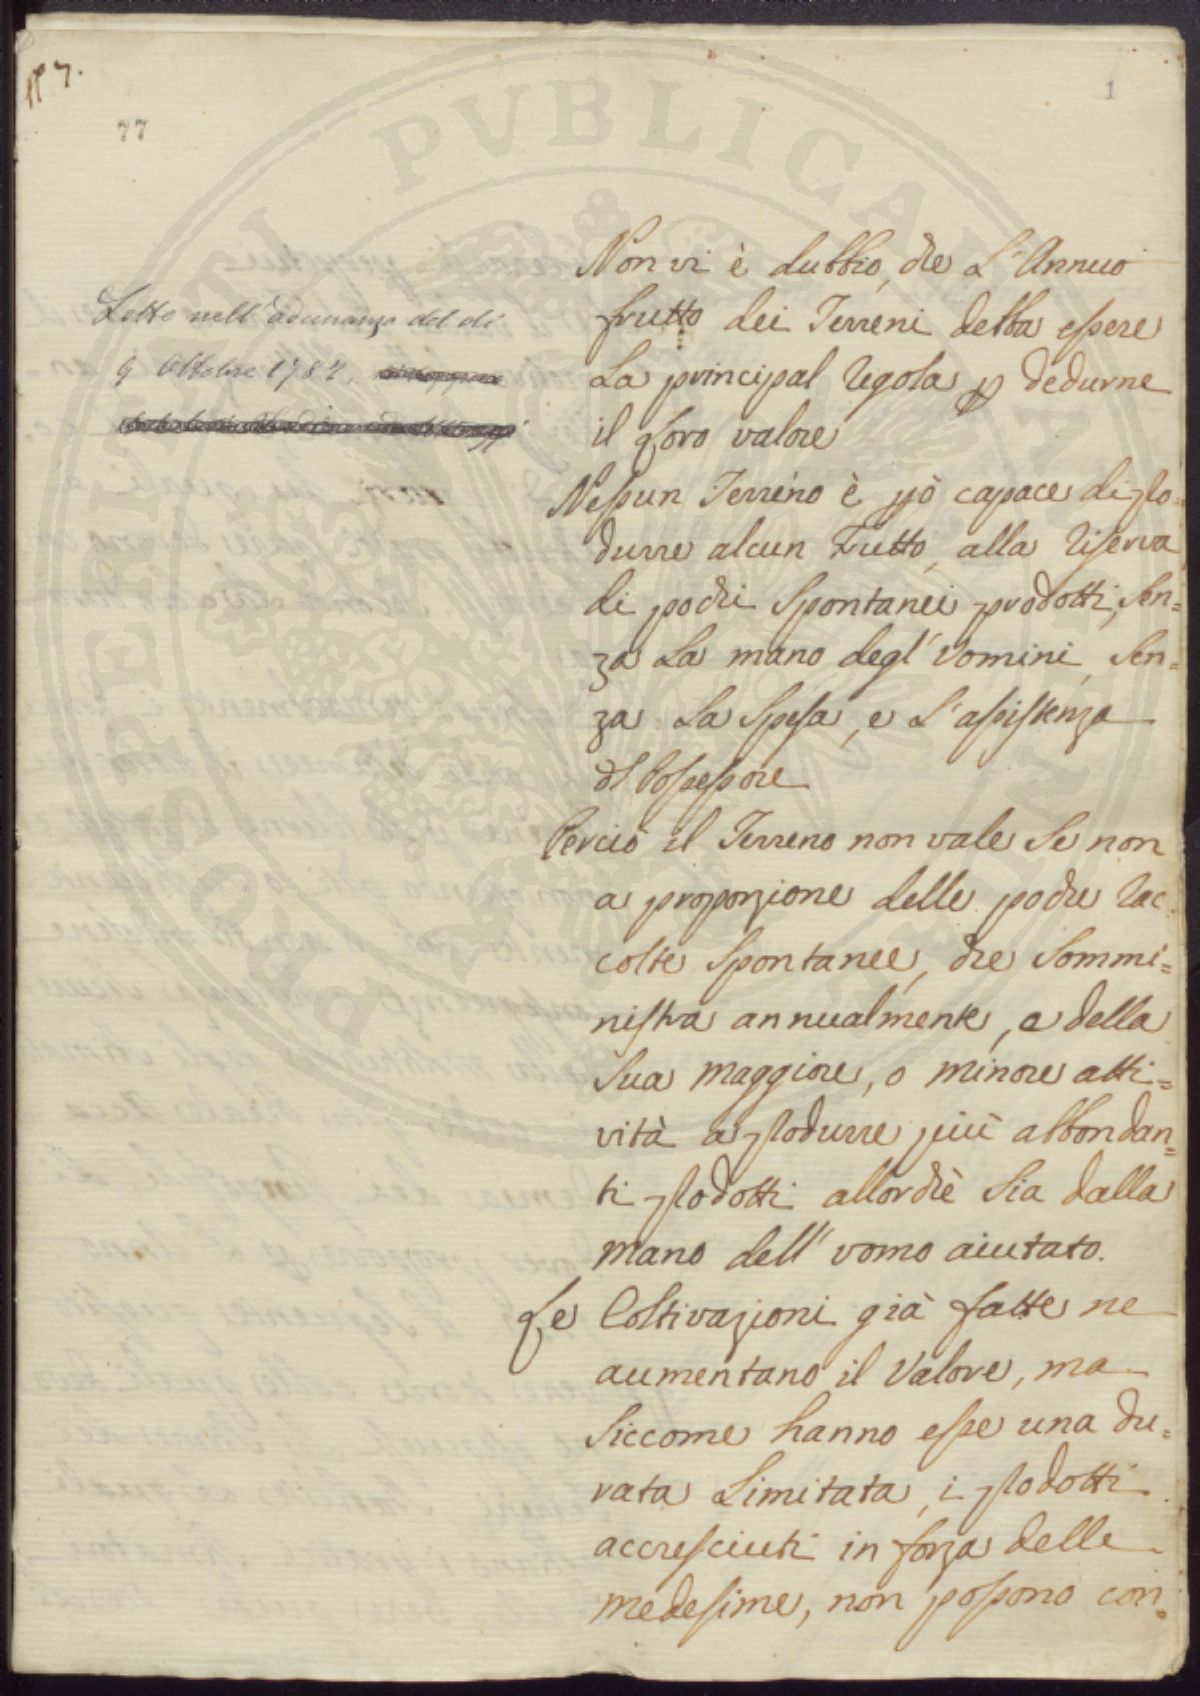 N° 7.
77
1
Letto nell' adunanza del di
9 Ottobre 1782.
Non vi è dubbio, che L'Annuo
frutto dei Terreni debba essere
La principal regola p dedurne
il Loro valore
Nessun Terreno è pò capace di pro=
durre alcun frutto, alla riserva
di pochi Spontanei prodotti, Sen=
za La mano degl' Uomini, Sen=
za La Spesa, e L'assistenza
del Possessore
Perciò il Terreno non vale Se non
a proporzione delle poche rac
colte Spontanee, che Sommi=
nistra annualmente, e della
Sua maggiore, o minore atti=
vità a produrre più abbondan=
ti prodotti allorchè Sia dalla
mano dell' uomo aiutato.
Le Coltivazioni già fatte ne
aumentano il Valore, ma
Siccome hanno esse una du=
rata Limitata, i prodotti
accresciuti in forza delle
medesime, non possono con=
POSTERITATI PVBLICAE